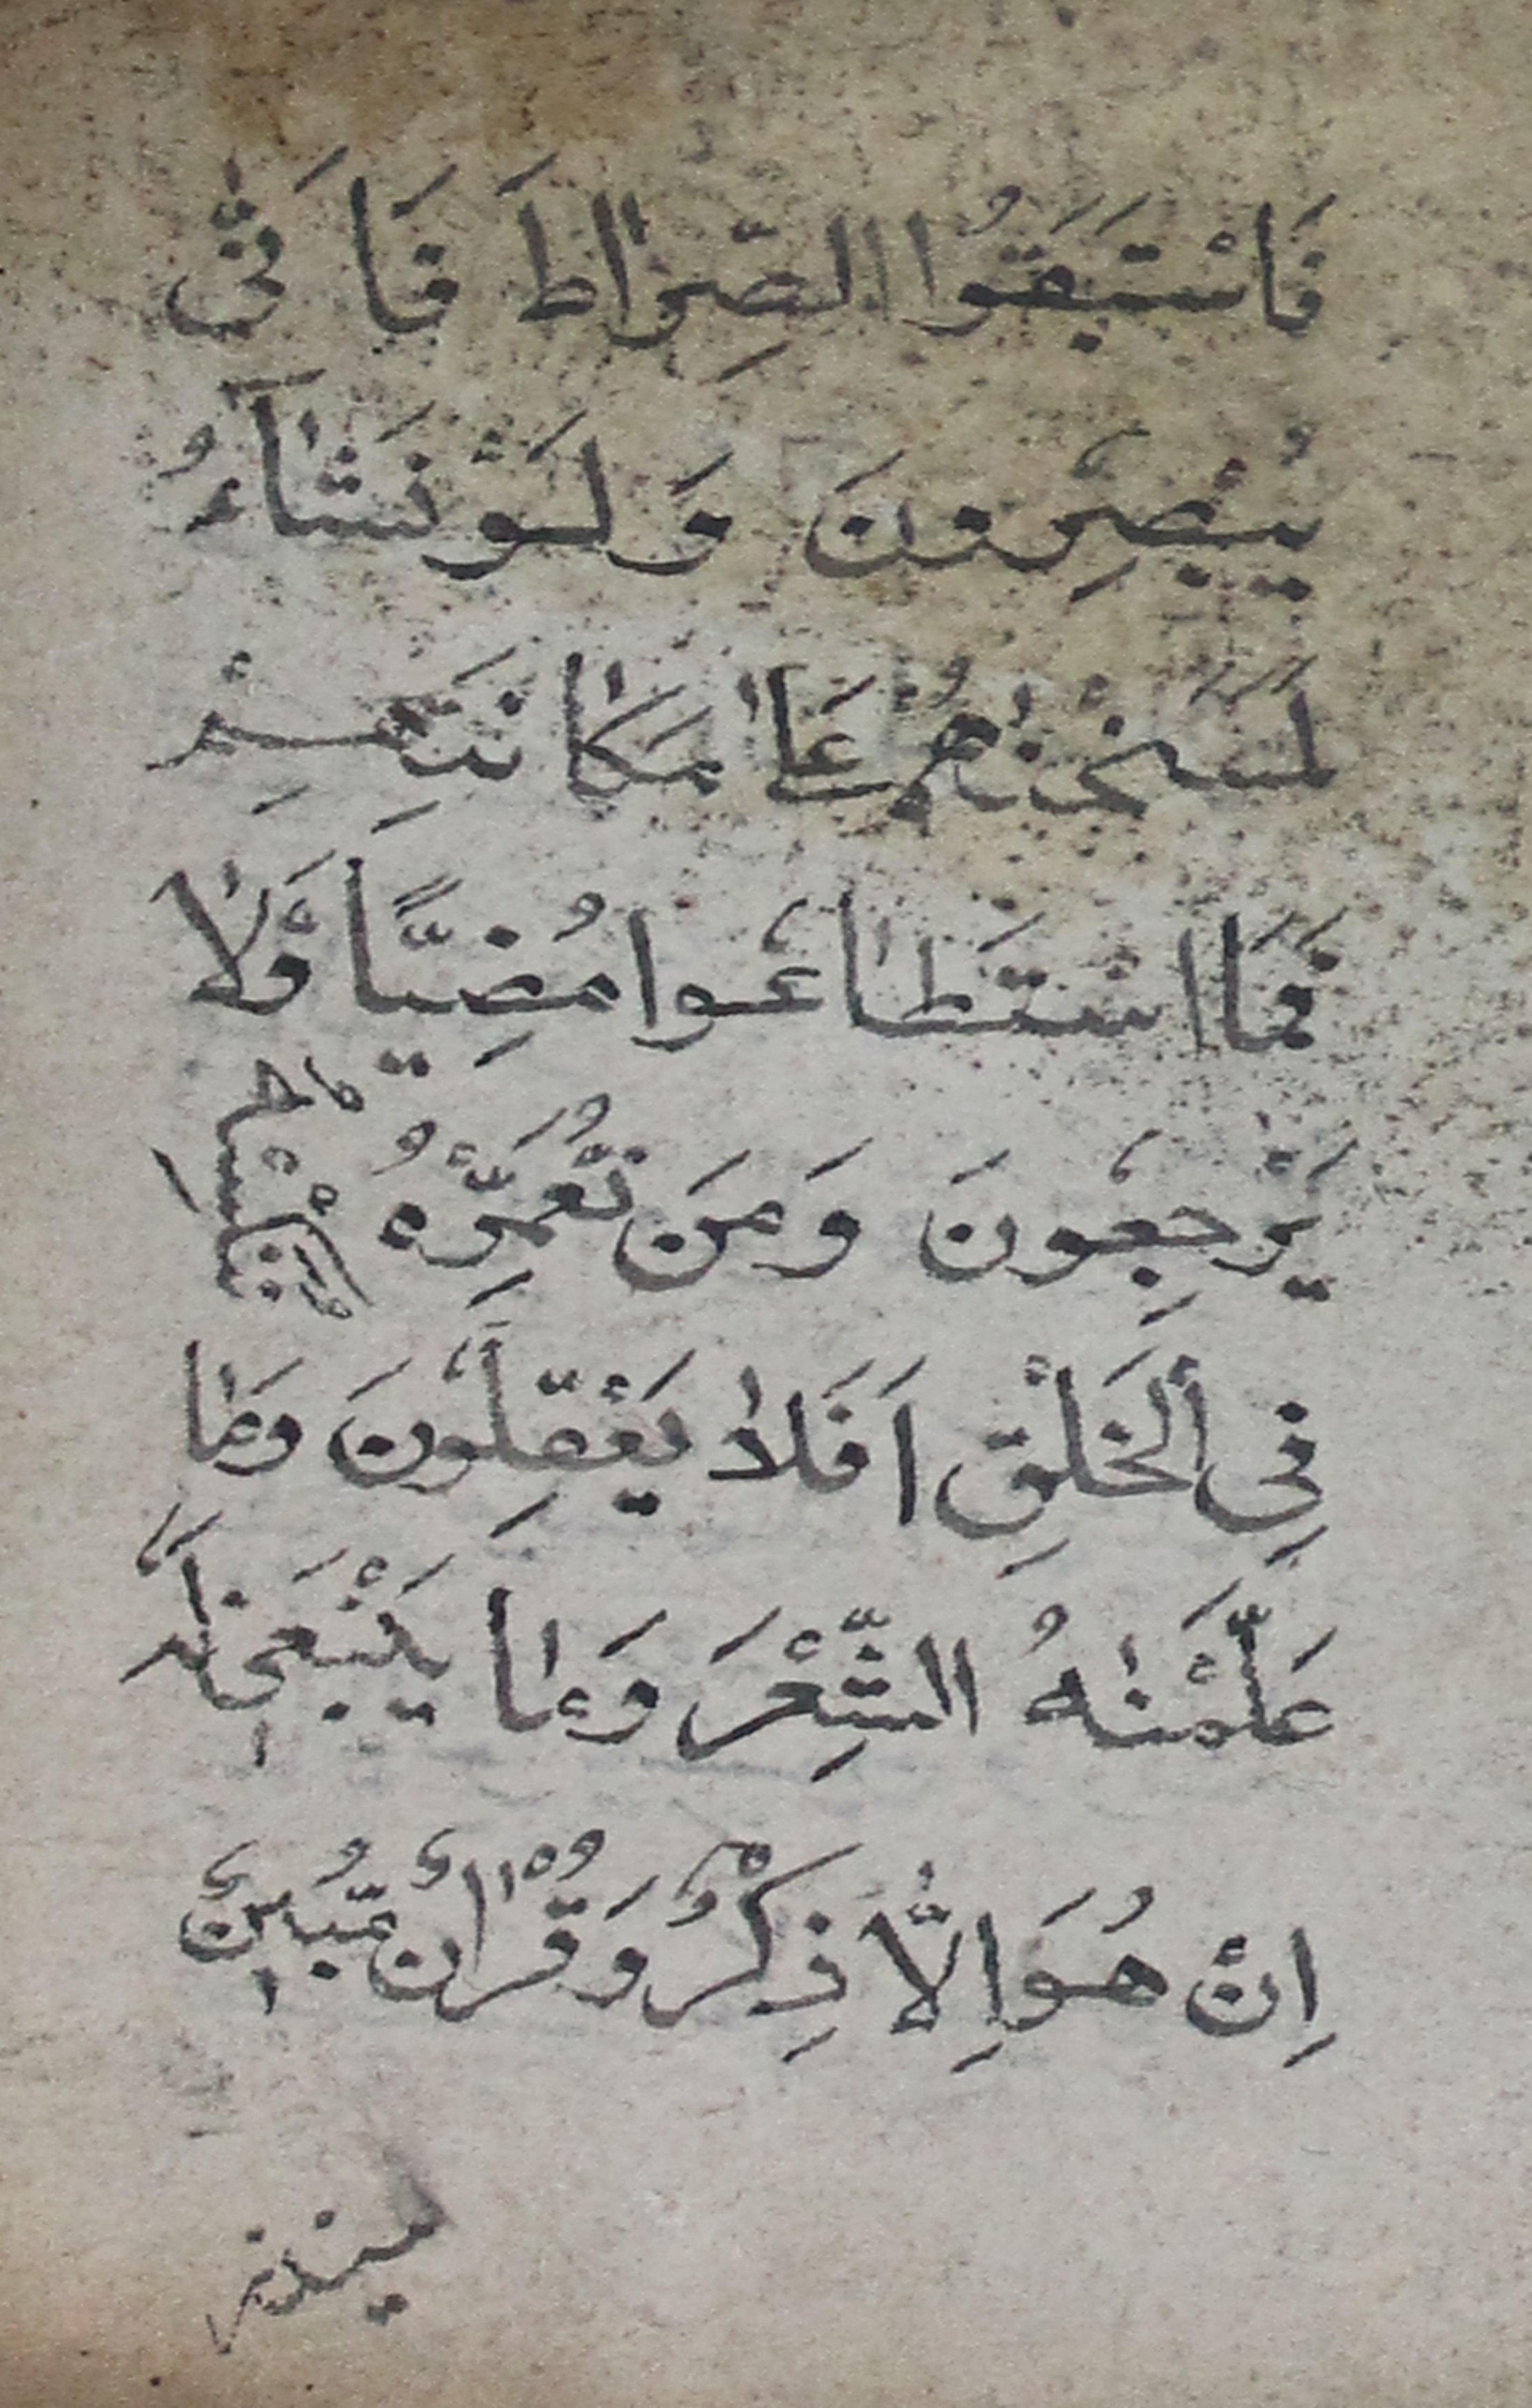 فَاسْتَبَقُوا الصِّرٰاطَ فَاَنّٰى
يُبْصِرُونَ وَلَوْ نَشٰٓاءُ
لَمَسَخْنٰهُمْ عَلٰا مَكٰانَتِهِمْ
فَمَا اسْتَطٰاعُوا مُضِيًّا وَّلٰا
يَرْجِعُونَ وَمَن نُعَمِّرْهُ نُنَكِّسْهُ
فِي الْخَلْقِ اَفَلٰا يَعْقِلُونَ وَمٰا
عَلَّمْنٰهُ الشِّعْرَ وَمٰا يَنْبَغي لَهُ
اِنْ هُوَ اِلّٰا ذِكْرٌ وَقُرْاٰنٌ مُّبينٌ
لينذر